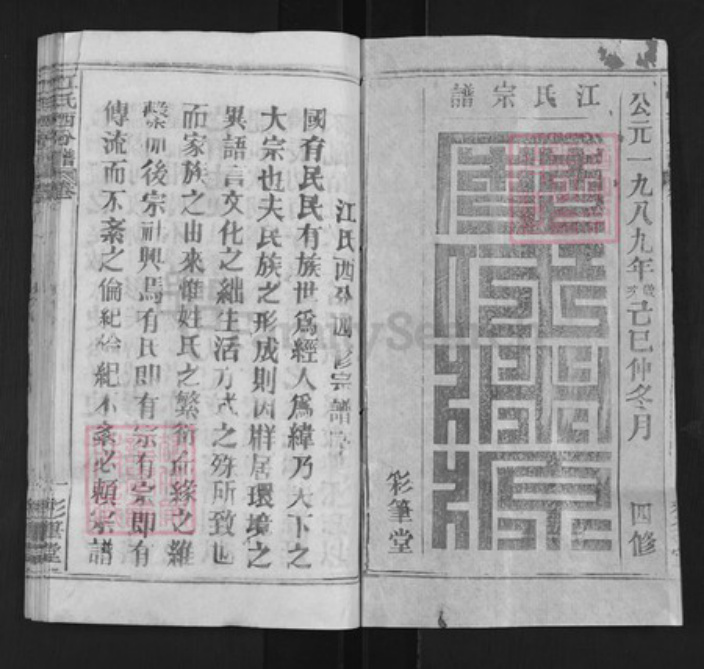 公元一九八九年歲次己巳仲冬月 四修
江氏宗譜
彩筆堂
江氏酉分四修宗譜序
國有民民有族世爲經人爲緯乃天下之
大宗也夫民族之形成則因群居環境之
異語言文化之絀生活方式之殊所致也
而家族之由來惟姓氏之繁衍血緣之維
繫而後宗祠興焉有民即有宗有宗即有
傳流而不紊之倫紀倫紀不紊必賴宗譜
江氏酉分譜
彩筆堂
FamilySearch